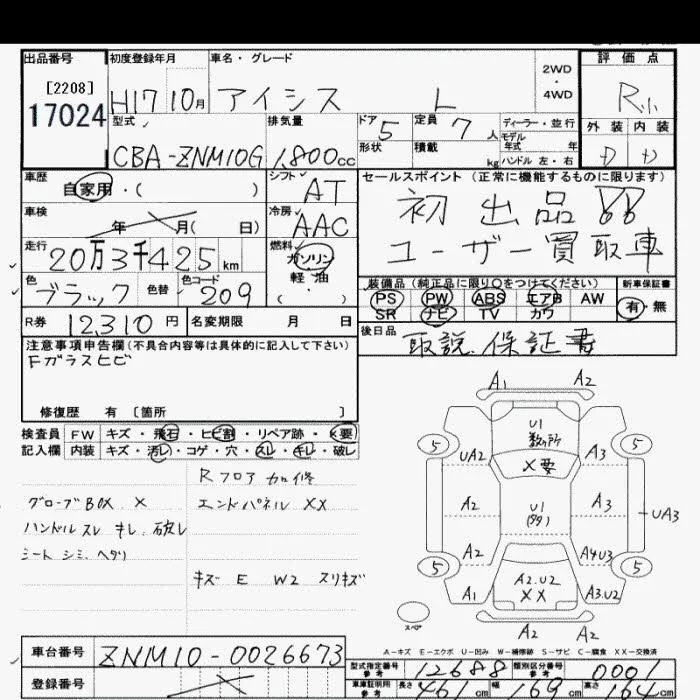 出品番号
[2208]
17024
初度登録年月
H17 10月
車名・グレード
アイシス L
2WD
・
4WD
評価点
R小
外装 内装
型式
CBA-ZNM10G
排気量
1,800cc
ドア 5
形状
定員 7人
積載 kg
ディーラー・並行
モデル
年式 年
ハンドル 左・右
車歴
自家用・( )
シフト
AT
セールスポイント(正常に機能するものに限ります)
初出品!!
ユーザー買取車
車検
年 月(日)
冷房
AAC
走行
20万3千425km
燃料
ガソリン
軽・油
( ・ )
色
ブラック
色替
色コード
209
装備品(純正品に限り○をつけてください)
PS PW ABS エアB AW
SR ナビ TV カワ
新車保証書
有・無
R券
12,310円
名変期限 月 日
後日品
取説.保証書
注意事項申告欄(不具合内容等は具体的に記入して下さい)
Fガラスヒビ
修復歴 有 〔箇所 〕
検査員 FW キズ・飛石・ヒビ割・リペア跡・X要
記入欄 内装 キズ・汚レ・コゲ・穴・スレ・キレ・破レ
Rフロア加修
グローブBOX X
エンドパネルXX
ハンドルスレ キレ.破レ
シート シミ.ヘタリ
キズ E W2 スリキズ
A1 A2
U1
数ヶ所
5 5
UA2 X要 A3
A2 U1 A3
UA3
A2 A4U3
5 5
A1 A2.U2 A3.U2
XX
A2 A2
スペア
A-キズ E-エクボ U-凹み W-補修跡 S-サビ C-腐食 XX-交換済
車台番号
ZNM10-0026673
登録番号
型式指定番号
参考
12688
類別区分番号
参考
0001
車庫証明用
参考
長さ 461cm 幅 169cm 高さ 164cm